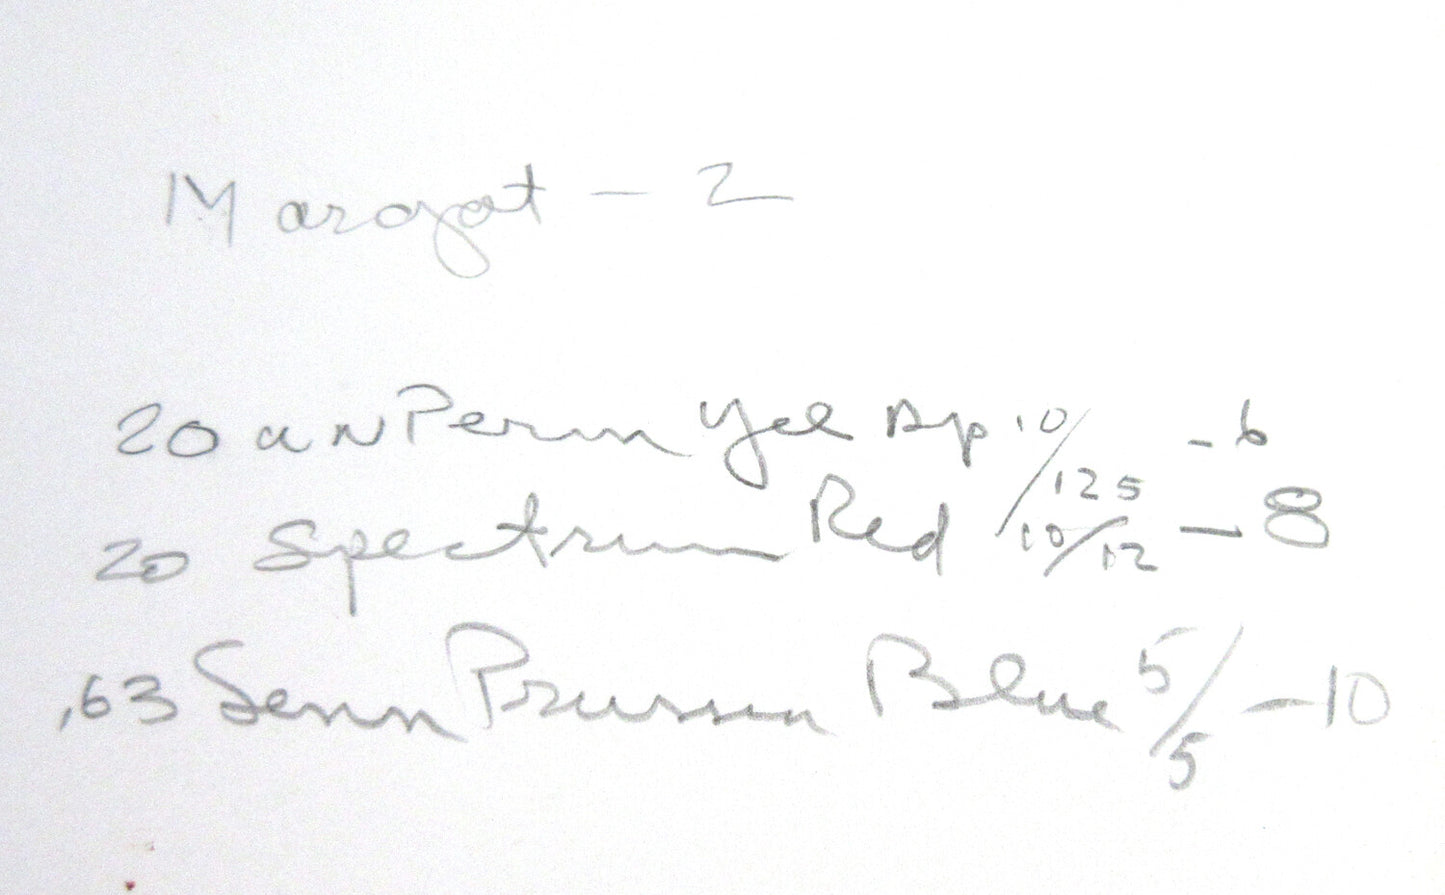 Margot - 2
20 W N Perm Yel Dp 10/125 - 6
20 Spectrum Red 10/12 - 8
,63 Senn Prussian Blue 5/5 - 10